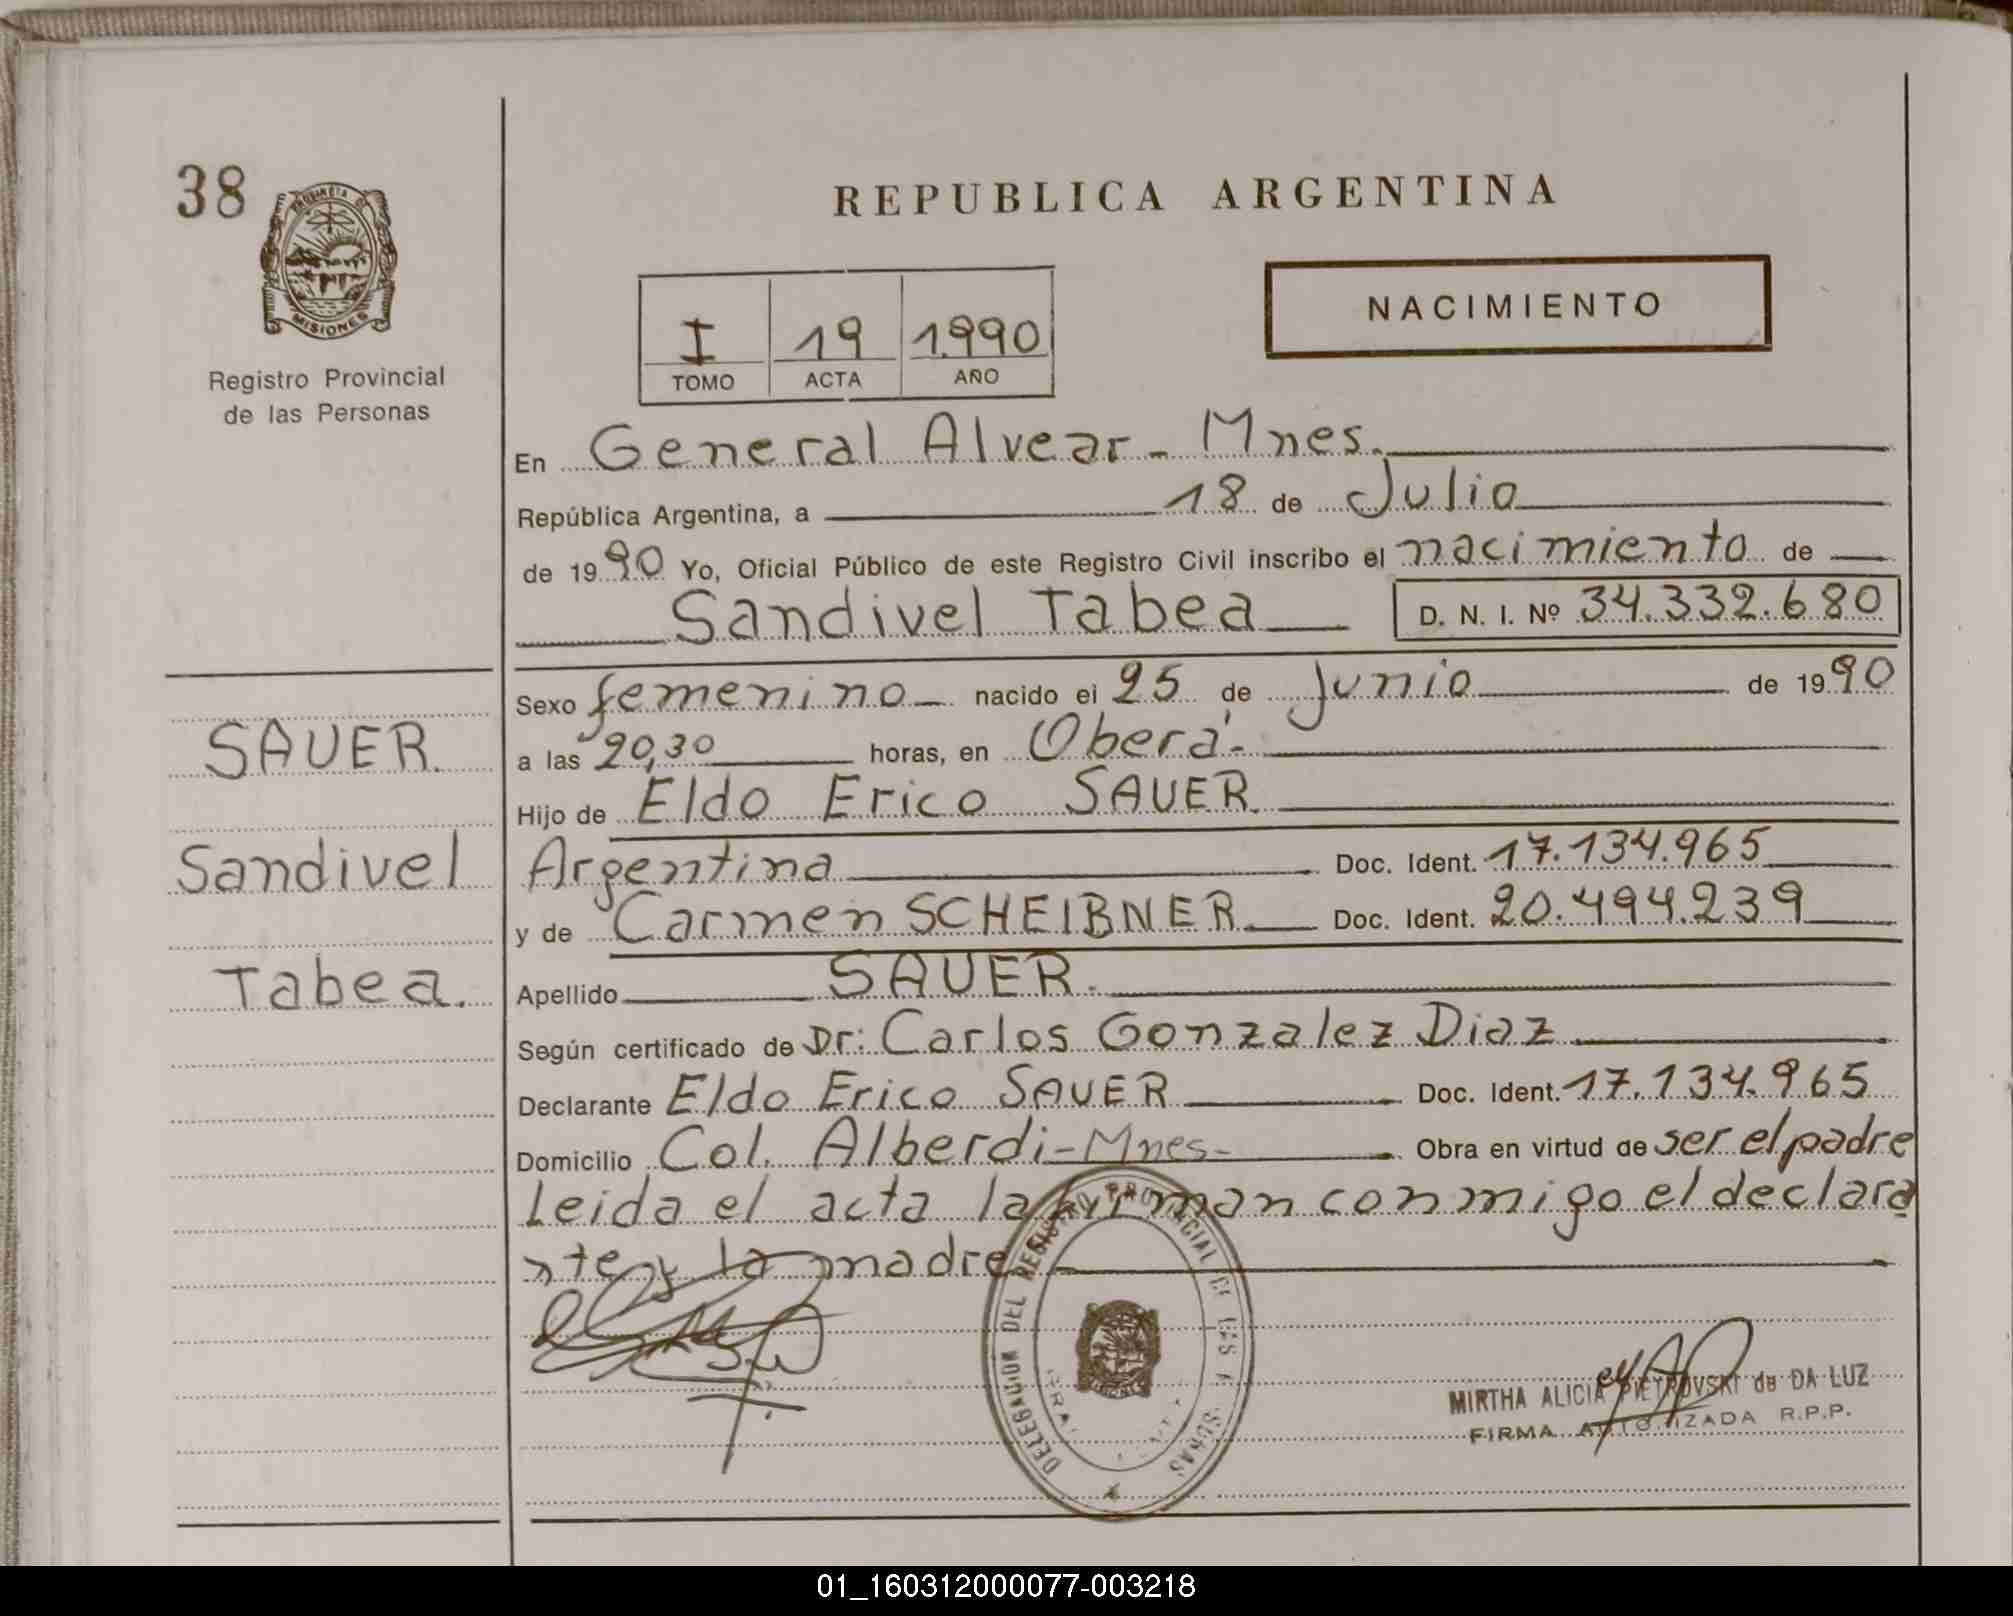 38
PROVINCIA DE
MISIONES
Registro Provincial
de las Personas
REPUBLICA ARGENTINA
I 19 1990
TOMO ACTA AÑO
NACIMIENTO
En General Alvear - Mnes.
República Argentina, a 18 de Julio
de 1990 Yo, Oficial Público de este Registro Civil inscribo el nacimiento de
Sandivel Tabea D. N. I. Nº 34.332.680
Sexo femenino nacido el 25 de Junio de 1990
a las 20,30 horas, en Oberá-
Hijo de Eldo Erico SAUER.
Argentina Doc. Ident. 17.134.965
y de Carmen SCHEIBNER Doc. Ident. 20.494.239
Apellido SAUER.
Según certificado de Dr: Carlos Gonzalez Diaz
Declarante Eldo Erico SAUER Doc. Ident. 17.134.965
Domicilio Col. Alberdi - Mnes - Obra en virtud de ser el padre
Leida el acta la firman conmigo el declara
nte y la madre
SAUER.
Sandivel
Tabea.
DELEGACION DEL REGISTRO PROVINCIAL DE LAS PERSONAS
MIRTHA ALICIA PIETROVSKI de DA LUZ
FIRMA AUTORIZADA R.P.P.
01_160312000077-003218